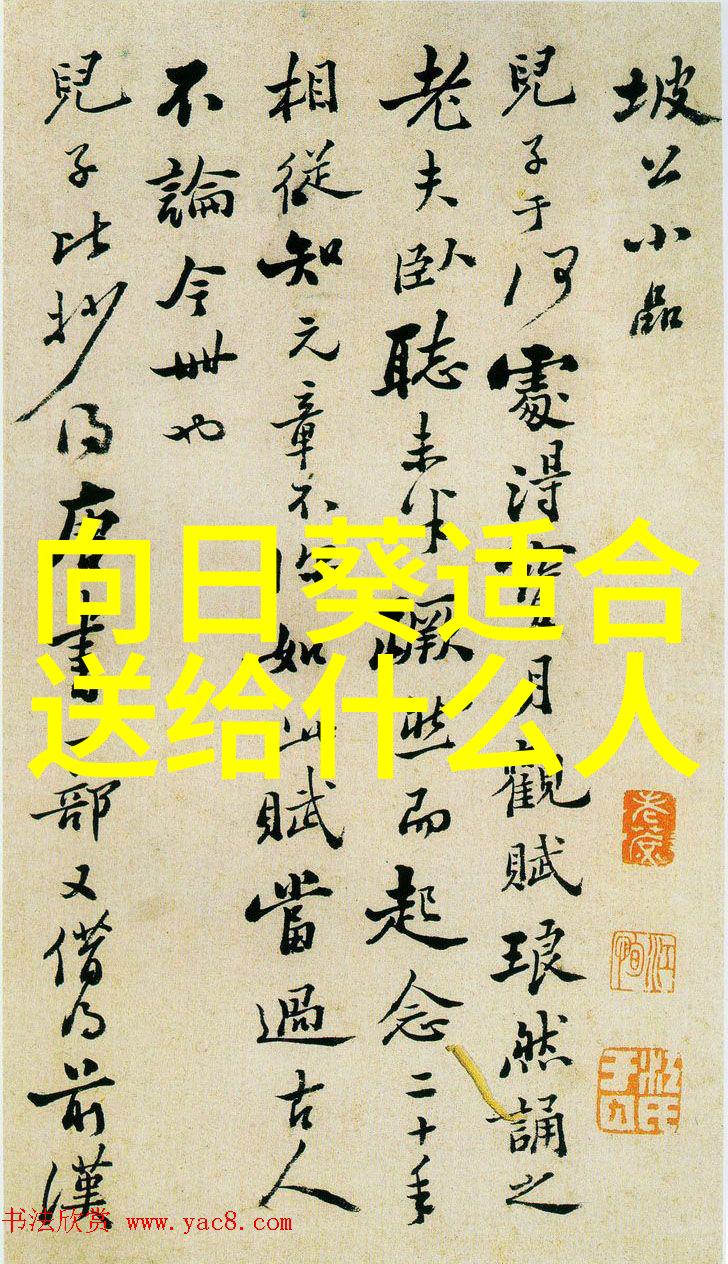 坡公小品
兒子于何處得寶月觀賦琅然誦之
老夫臥聽未半蹶然而起念二十年
相從知元章不如此賦當過古人
不論今丗也
兒子比抄得唐書一部又借得前漢
向日葵适合
送给什么人
书法欣赏 www.yac8.com